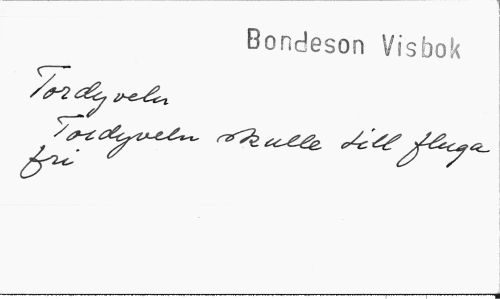 Bondeson Visbok
Tordyveln
Tordyveln skulle till fluga
fri